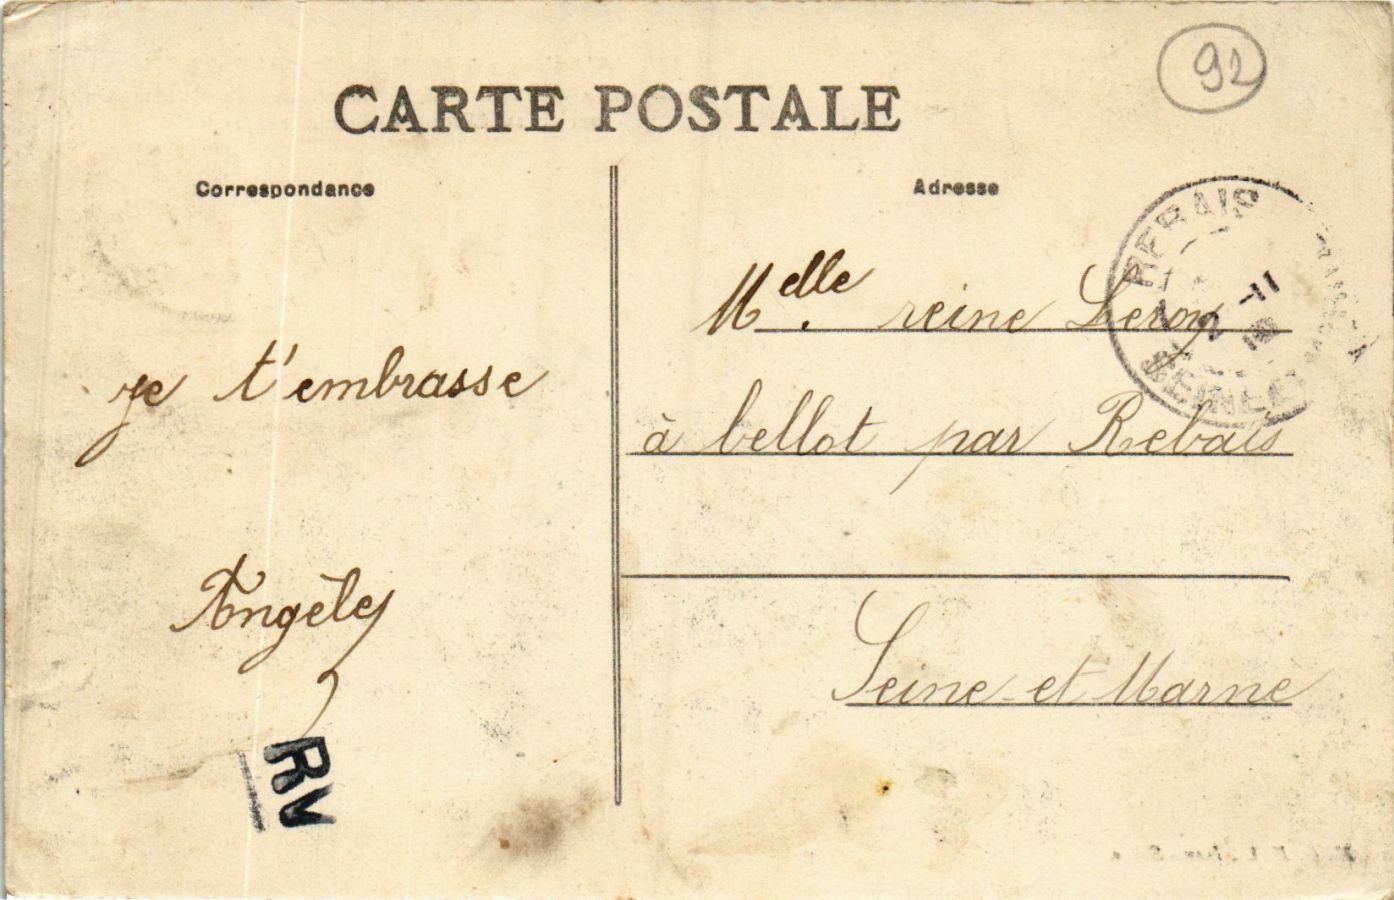 92
CARTE POSTALE
Correspondance
Adresse
REBAIS
Melle. reine Leroy
je t'embrasse
à bellot par Rebais
Angèle
Seine-et Marne
RV